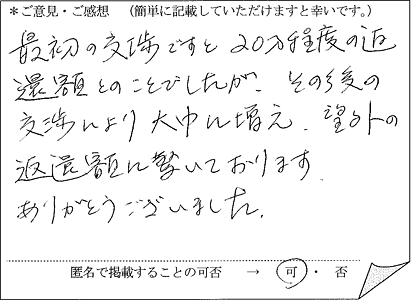 *ご意見・ご感想 (簡単に記載していただけますと幸いです。)
最初の交渉ですと20万程度の返
還額とのことでしたが、その後の
交渉により大巾に増え、望外の
返還額に驚いております
ありがとうございました。
匿名で掲載することの可否 → 可・否